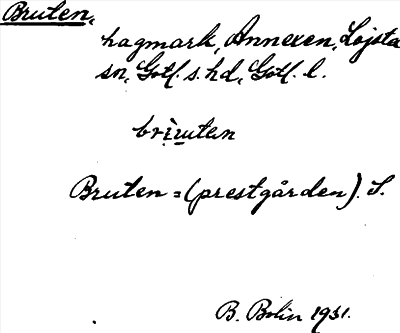 Bruten,
hagmark, Annexen, Lojsta
sn, Gotl. s. hd, Gotl. l.
briuten
Bruten = (prestgården). S.
B. Bolin 1931.